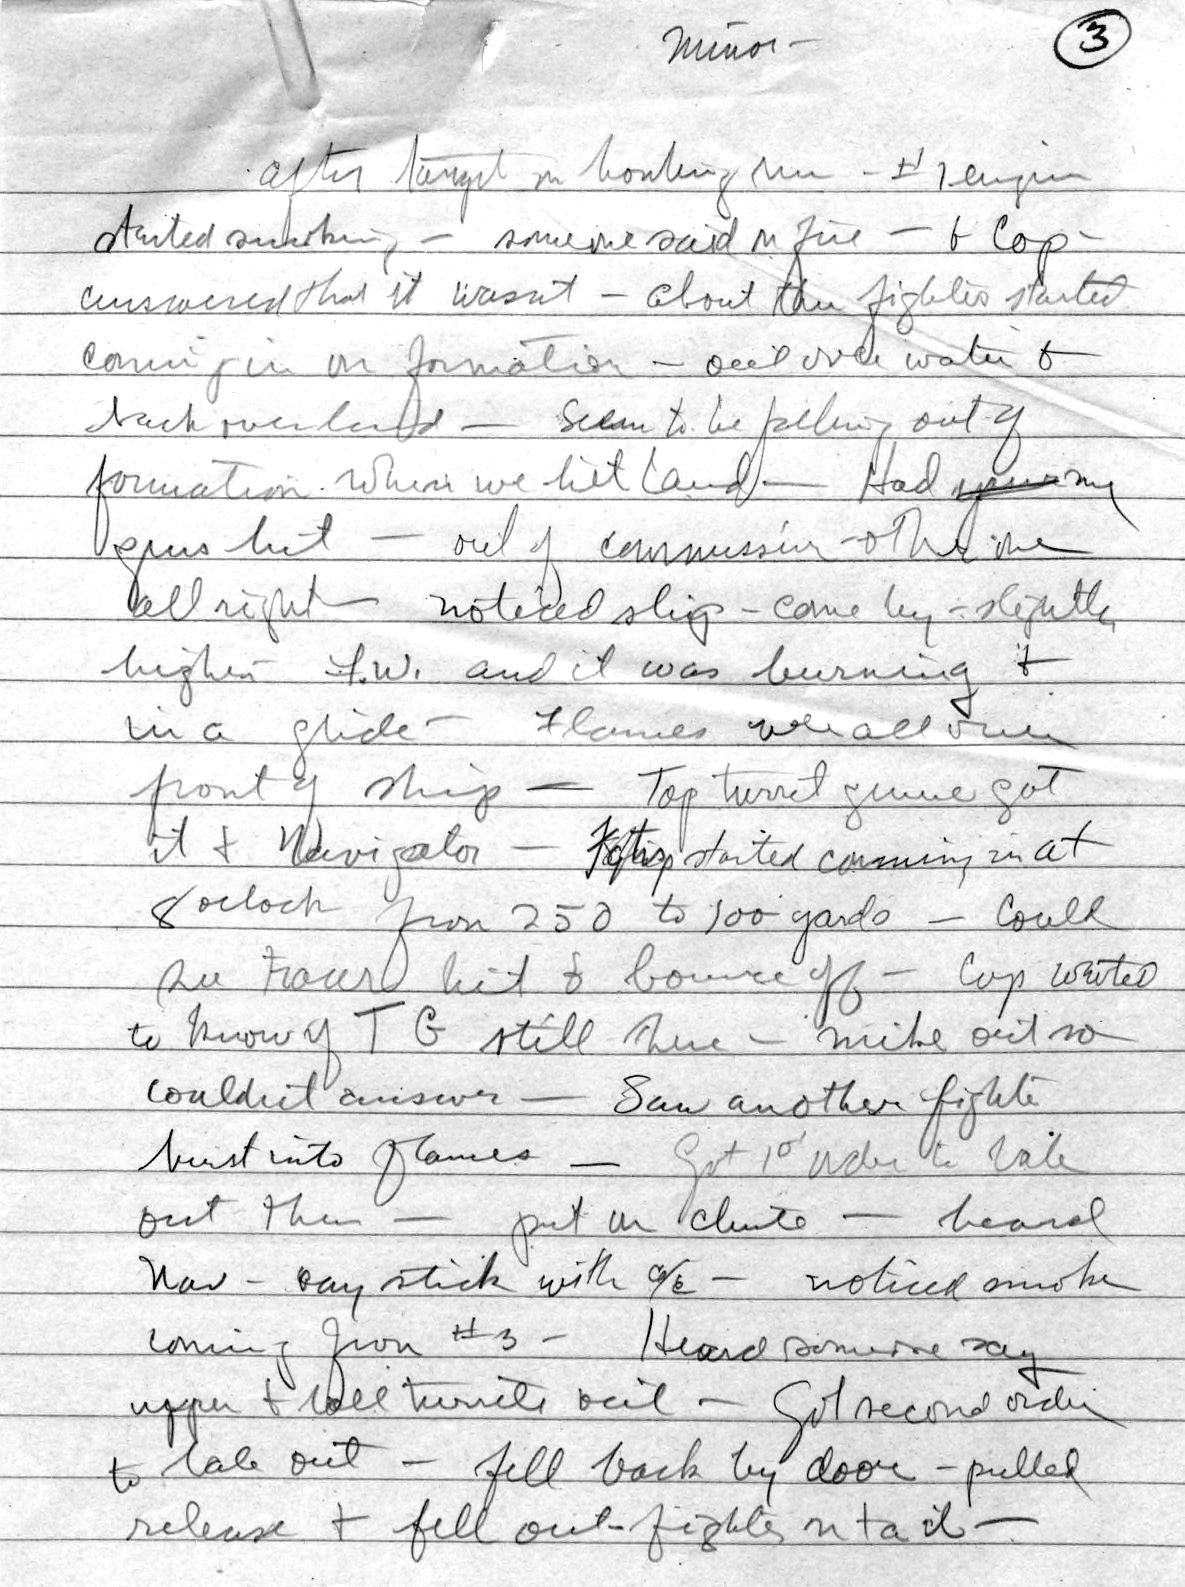 Minor -
3
after target on bombing run - #1 engine
started smoking - someone said on fire - & Cop -
answered that it wasnt - about then fighters started
coming in on formation - out over water &
back over land - Seem to be falling out of
formation when we hit land - Had my
guns hit - out of commission - other one
all right noticed ship - come by - slightly
higher F.W. and it was burning &
in a glide - Flames were all over
front of ship - Top turret gunner got
it & Navigator - started comming in at
8 oclock from 250 to 100 yards - Could
see tracers hit & bounce off - Cop wanted
to know if T G still there - mike out so
couldnt answer - Saw another fighter
burst into flames - Got 1st order to bale
out then - put on chute - heard
Nav - say stick with a/c - noticed smoke
coming from #3 - Heard someone say
upper & ball turrets out - Got second order
to bale out - fell back by door - pulled
release & fell out - fighter on tail -